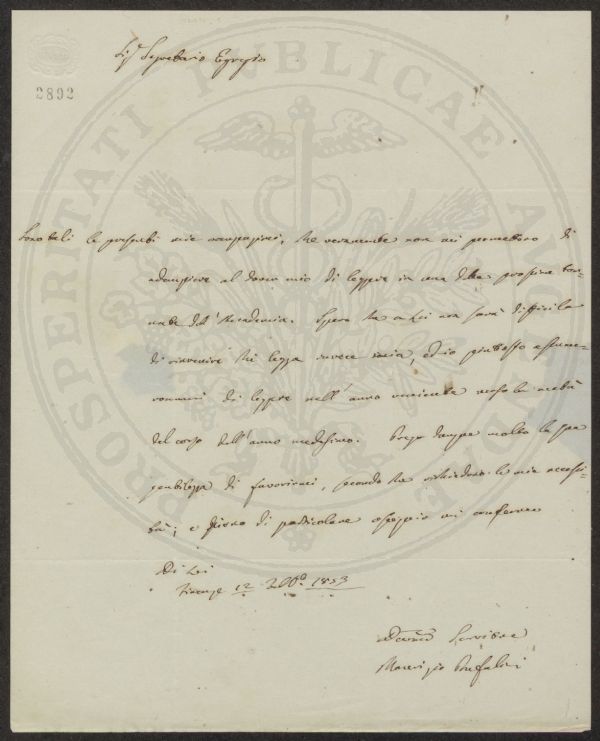 Sig.r Segretario Egregio
2892
PROSPERITATI PUBLICAE AUGENDAE
Sono tali le presenti mie occupazioni, che veramente non mi permettono di
adempiere al dover mio di leggere in una delle prossime tor-
nate dell'Accademia. Spero che a Lei non sarà difficile
di rinvenire chi legga invece mia, ed io piuttosto assume-
rommi di leggere nell'anno venturo verso la metà
del corso dell'anno medesimo. Prego dunque molto la sua
gentilezza di favorirmi, secondo che richiedono le mie
e pieno di particolare ossequio mi confermo
Di Lei
Firenze 12 1853
Servitore
Maurizio Bufalini